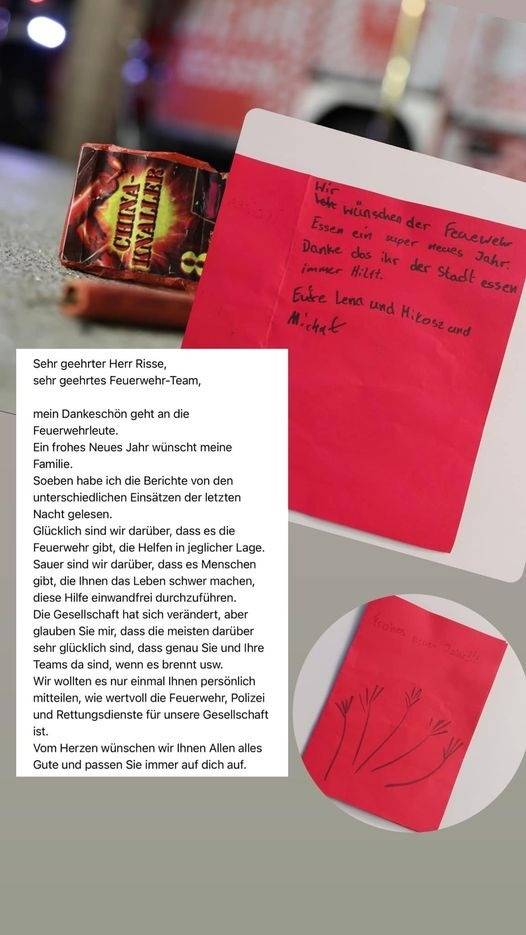 CHINA-
KNALLER
8
Wir
wünschen der Feuewehr
Essen ein super neues Jahr.
Danke das ihr der Stadt essen
immer Hilft.
Eure Lena und Mikosz und
Michał
Sehr geehrter Herr Risse,
sehr geehrtes Feuerwehr-Team,
mein Dankeschön geht an die
Feuerwehrleute.
Ein frohes Neues Jahr wünscht meine
Familie.
Soeben habe ich die Berichte von den
unterschiedlichen Einsätzen der letzten
Nacht gelesen.
Glücklich sind wir darüber, dass es die
Feuerwehr gibt, die Helfen in jeglicher Lage.
Sauer sind wir darüber, dass es Menschen
gibt, die Ihnen das Leben schwer machen,
diese Hilfe einwandfrei durchzuführen.
Die Gesellschaft hat sich verändert, aber
glauben Sie mir, dass die meisten darüber
sehr glücklich sind, dass genau Sie und Ihre
Teams da sind, wenn es brennt usw.
Wir wollten es nur einmal Ihnen persönlich
mitteilen, wie wertvoll die Feuerwehr, Polizei
und Rettungsdienste für unsere Gesellschaft
ist.
Vom Herzen wünschen wir Ihnen Allen alles
Gute und passen Sie immer auf dich auf.
Frohes neues Jahr!!!